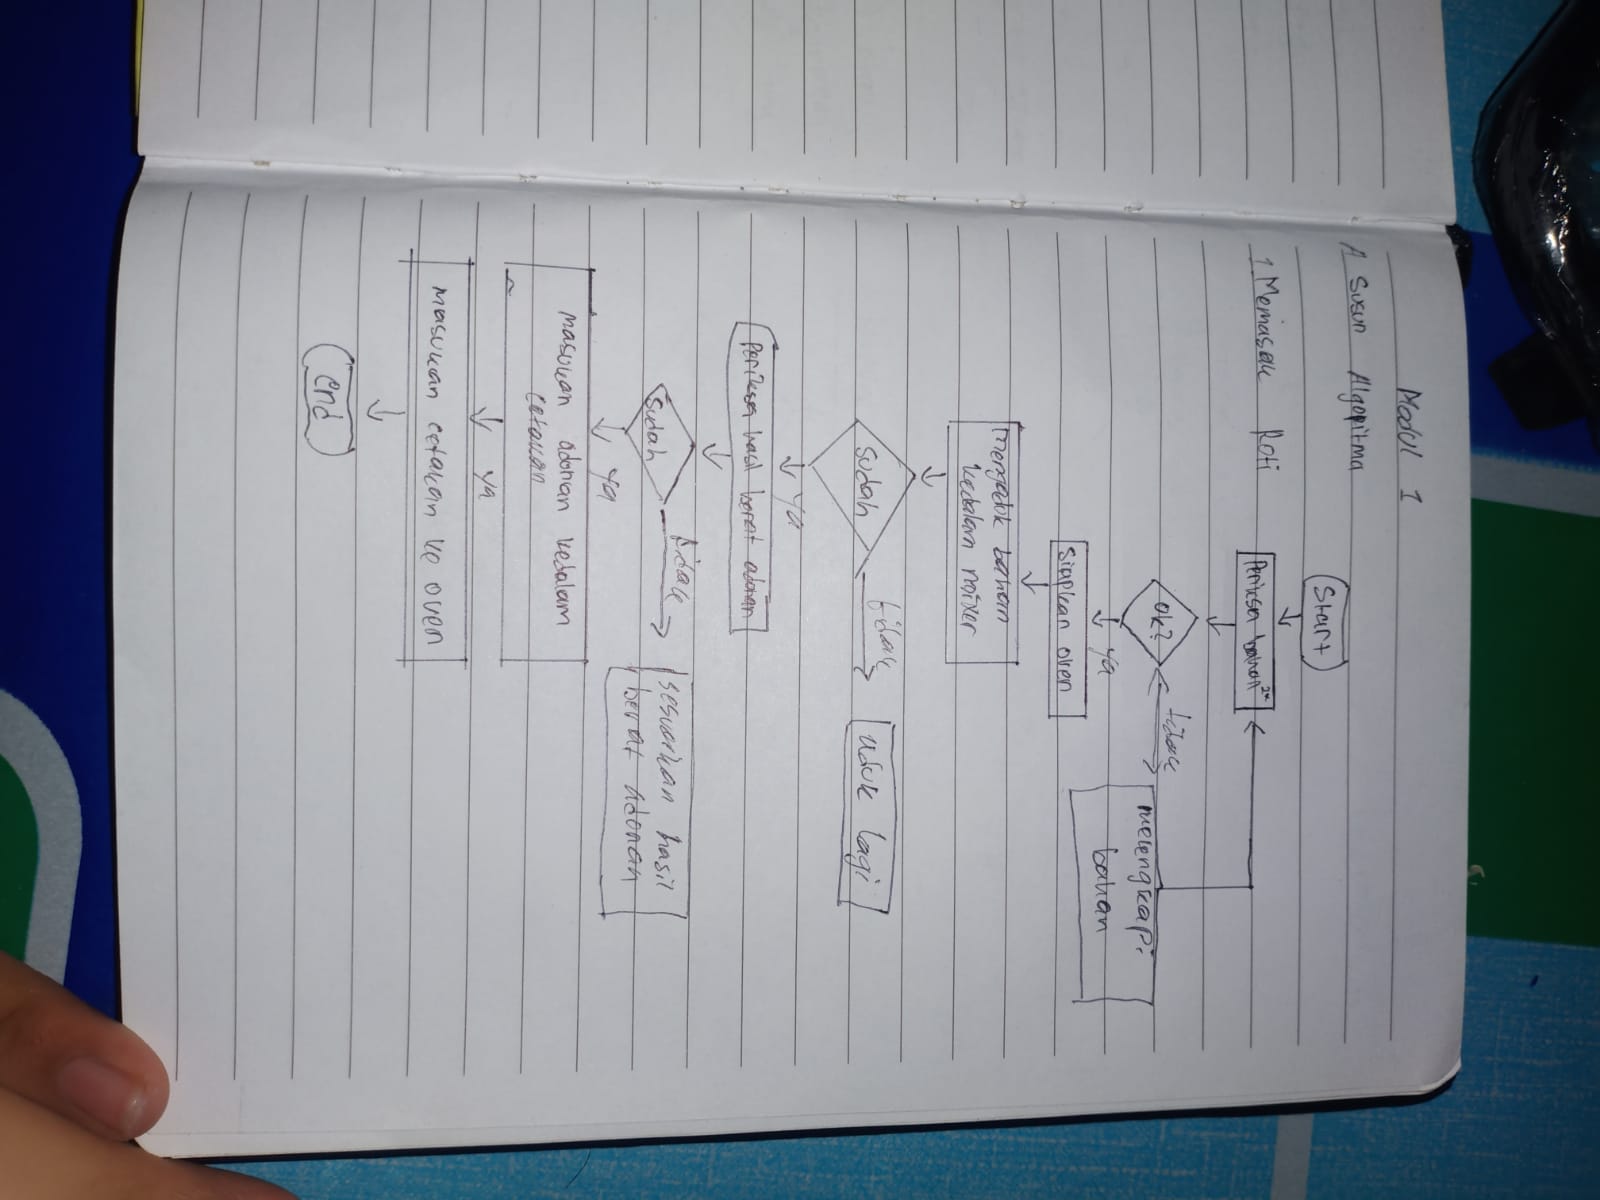 Modul 1
A Susun Algopitma
1 Memasak Roti
Start
Periksa bahan²"
ok?
tidak
melengkapi
bahan
ya
Siapkan oven
mengaduk bahan
kedalam mixer
Sudah
tidak
Aduk lagi
ya
Periksa hasil berat adonan
Sudah
tidak
sesuaikan hasil
berat adonan
ya
masukan adonan kedalam
cetakan
ya
masukan cetakan ke oven
End